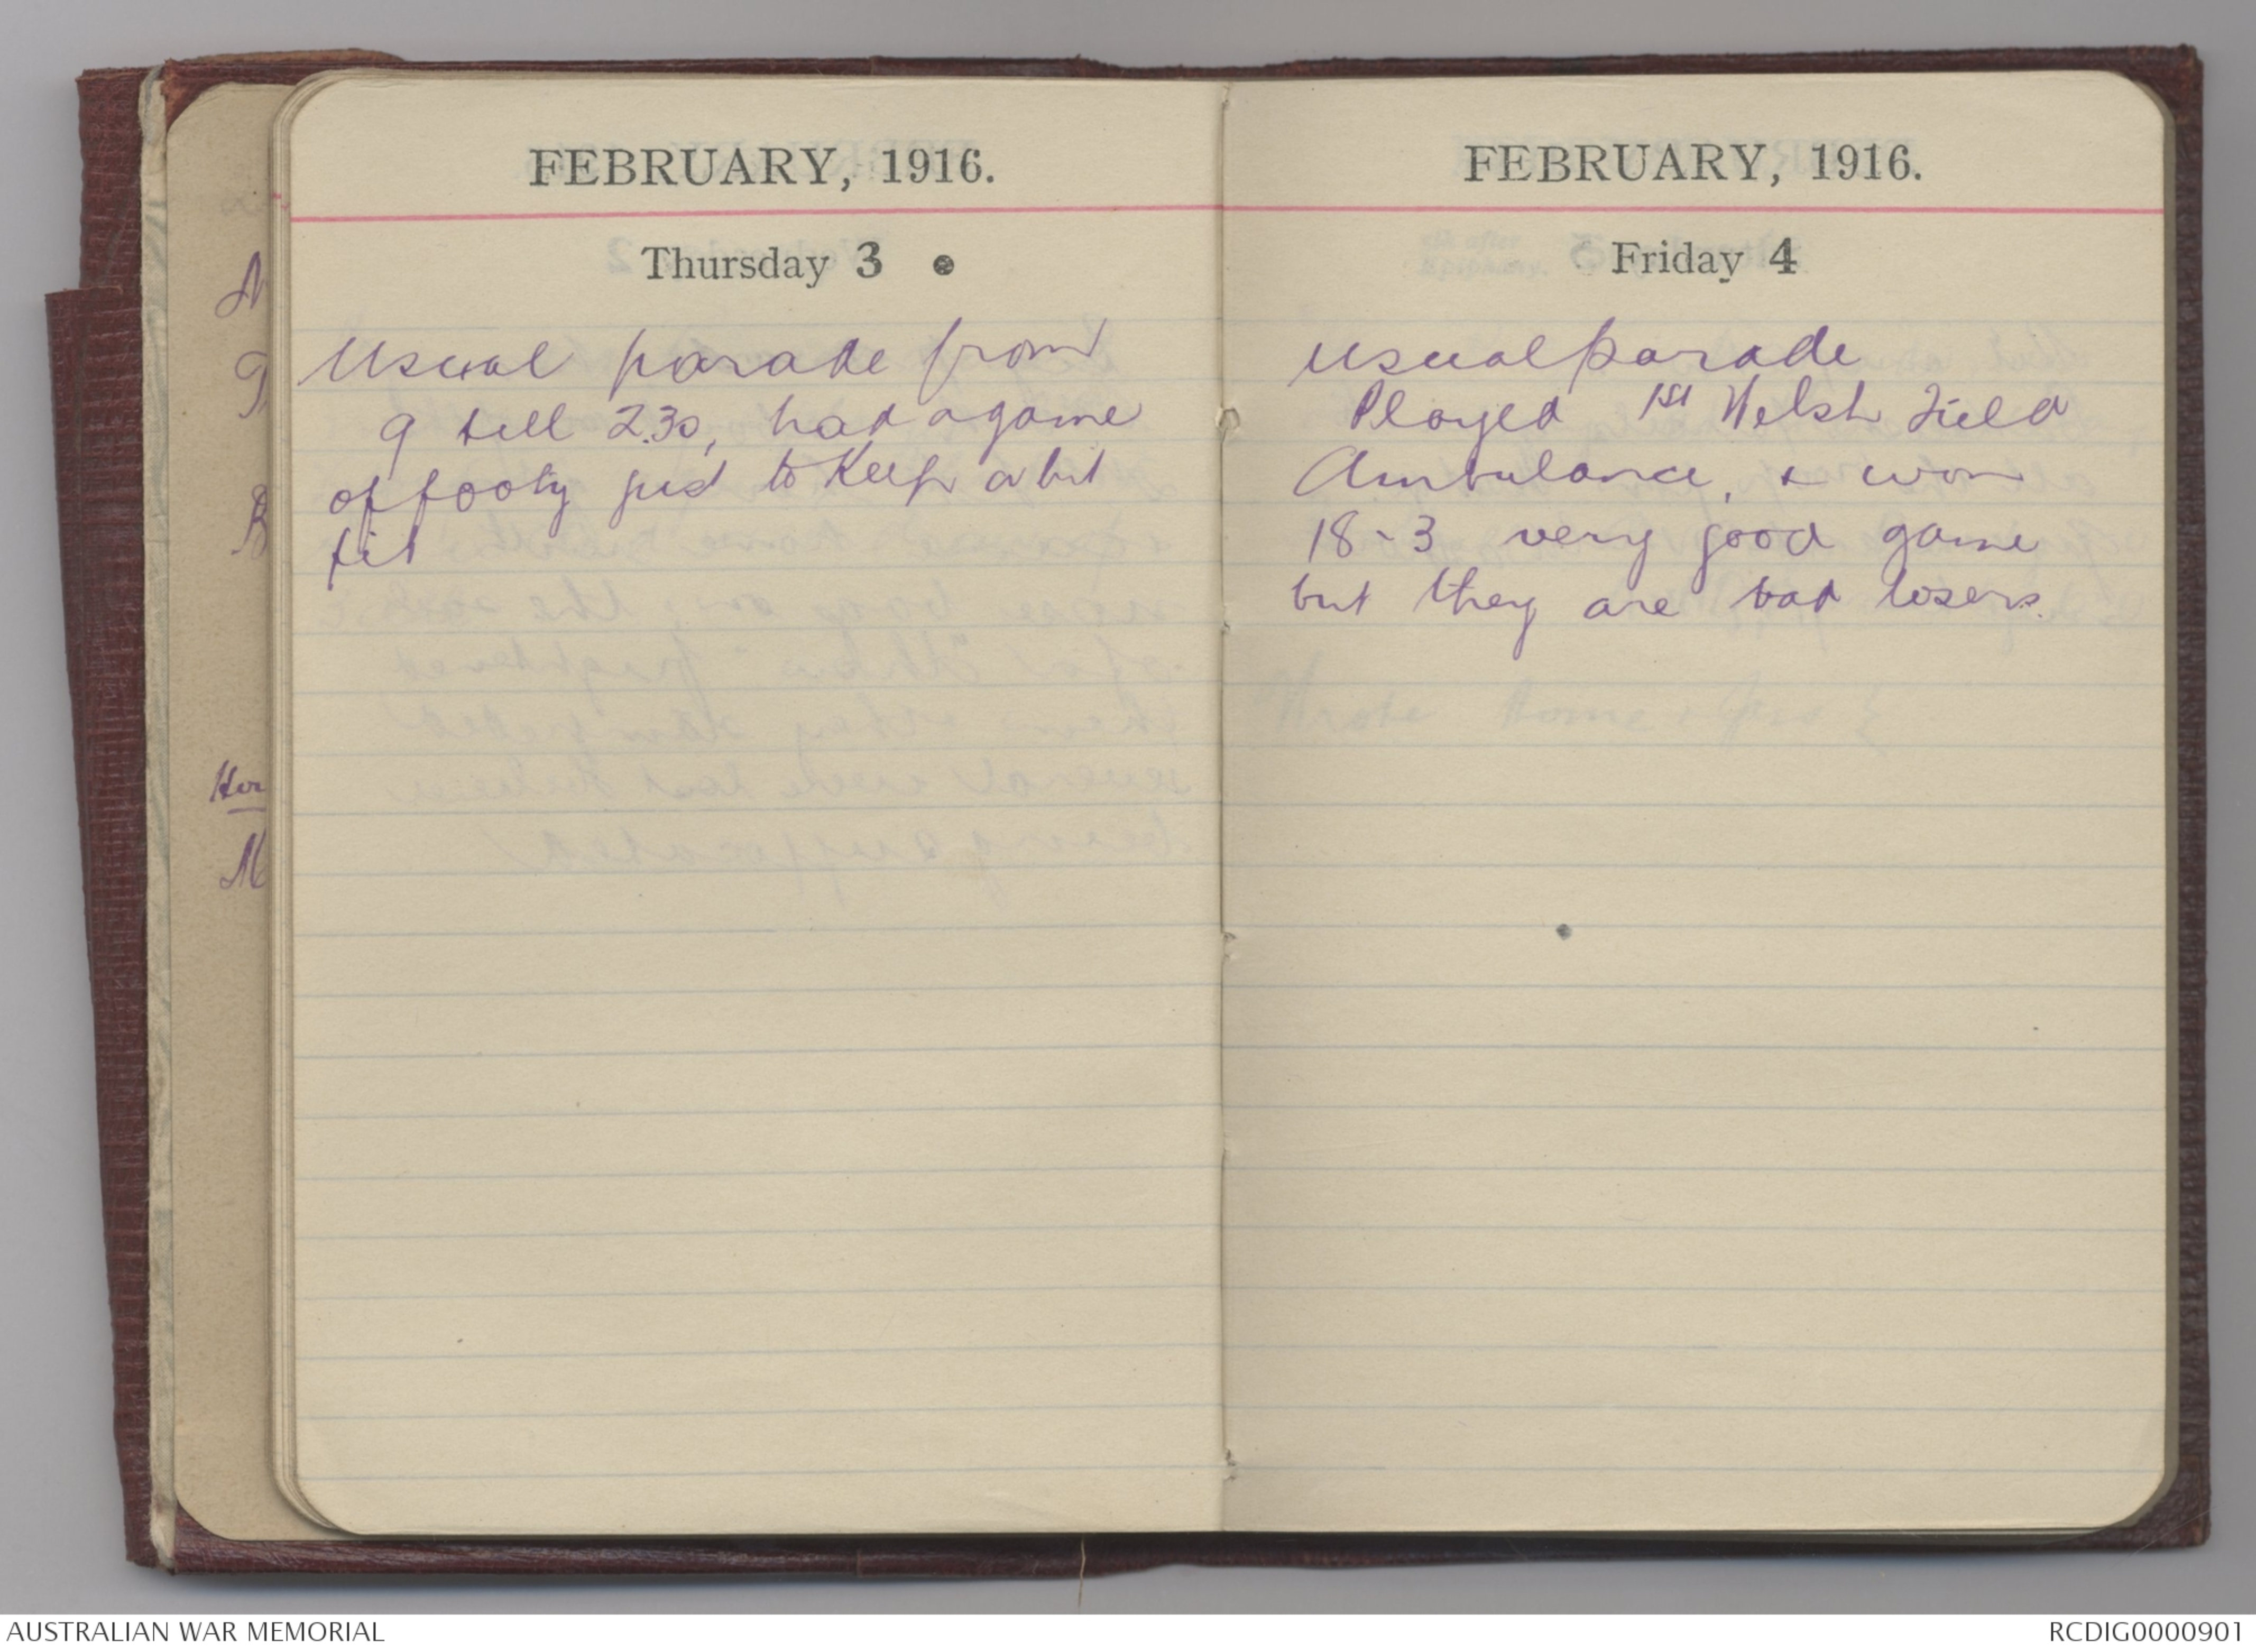 FEBRUARY, 1916.
Thursday 3
Usual parade from
9 till 2.30, had a game
of footy just to keep a bit
fit
FEBRUARY, 1916.
Friday 4
usual parade
Played 1st Welsh Field
Ambulance, & won
18-3 very good game
but they are bad losers.
Wrote Home &
AUSTRALIAN WAR MEMORIAL
RCDIG0000901